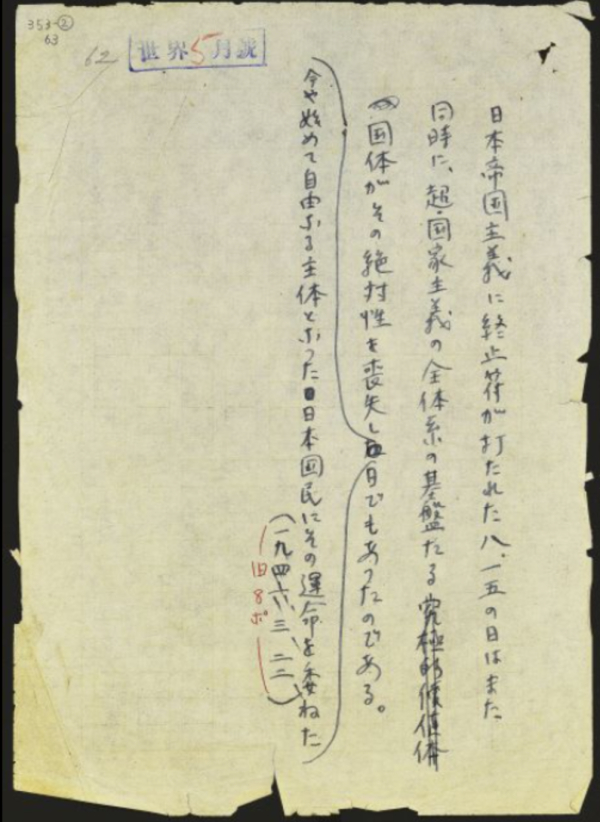 353-②
63
62
世界5月號
日本帝国主義に終止符が打たれた八・一五の日はまた
同時に、超国家主義の全体系の基盤たる究極的価値体
国体がその絶対性を喪失し日でもあつたのである。
今や始めて自由なる主体となつた日本国民にその運命を委ねた
(一九四六、三、二二)
旧8ポ